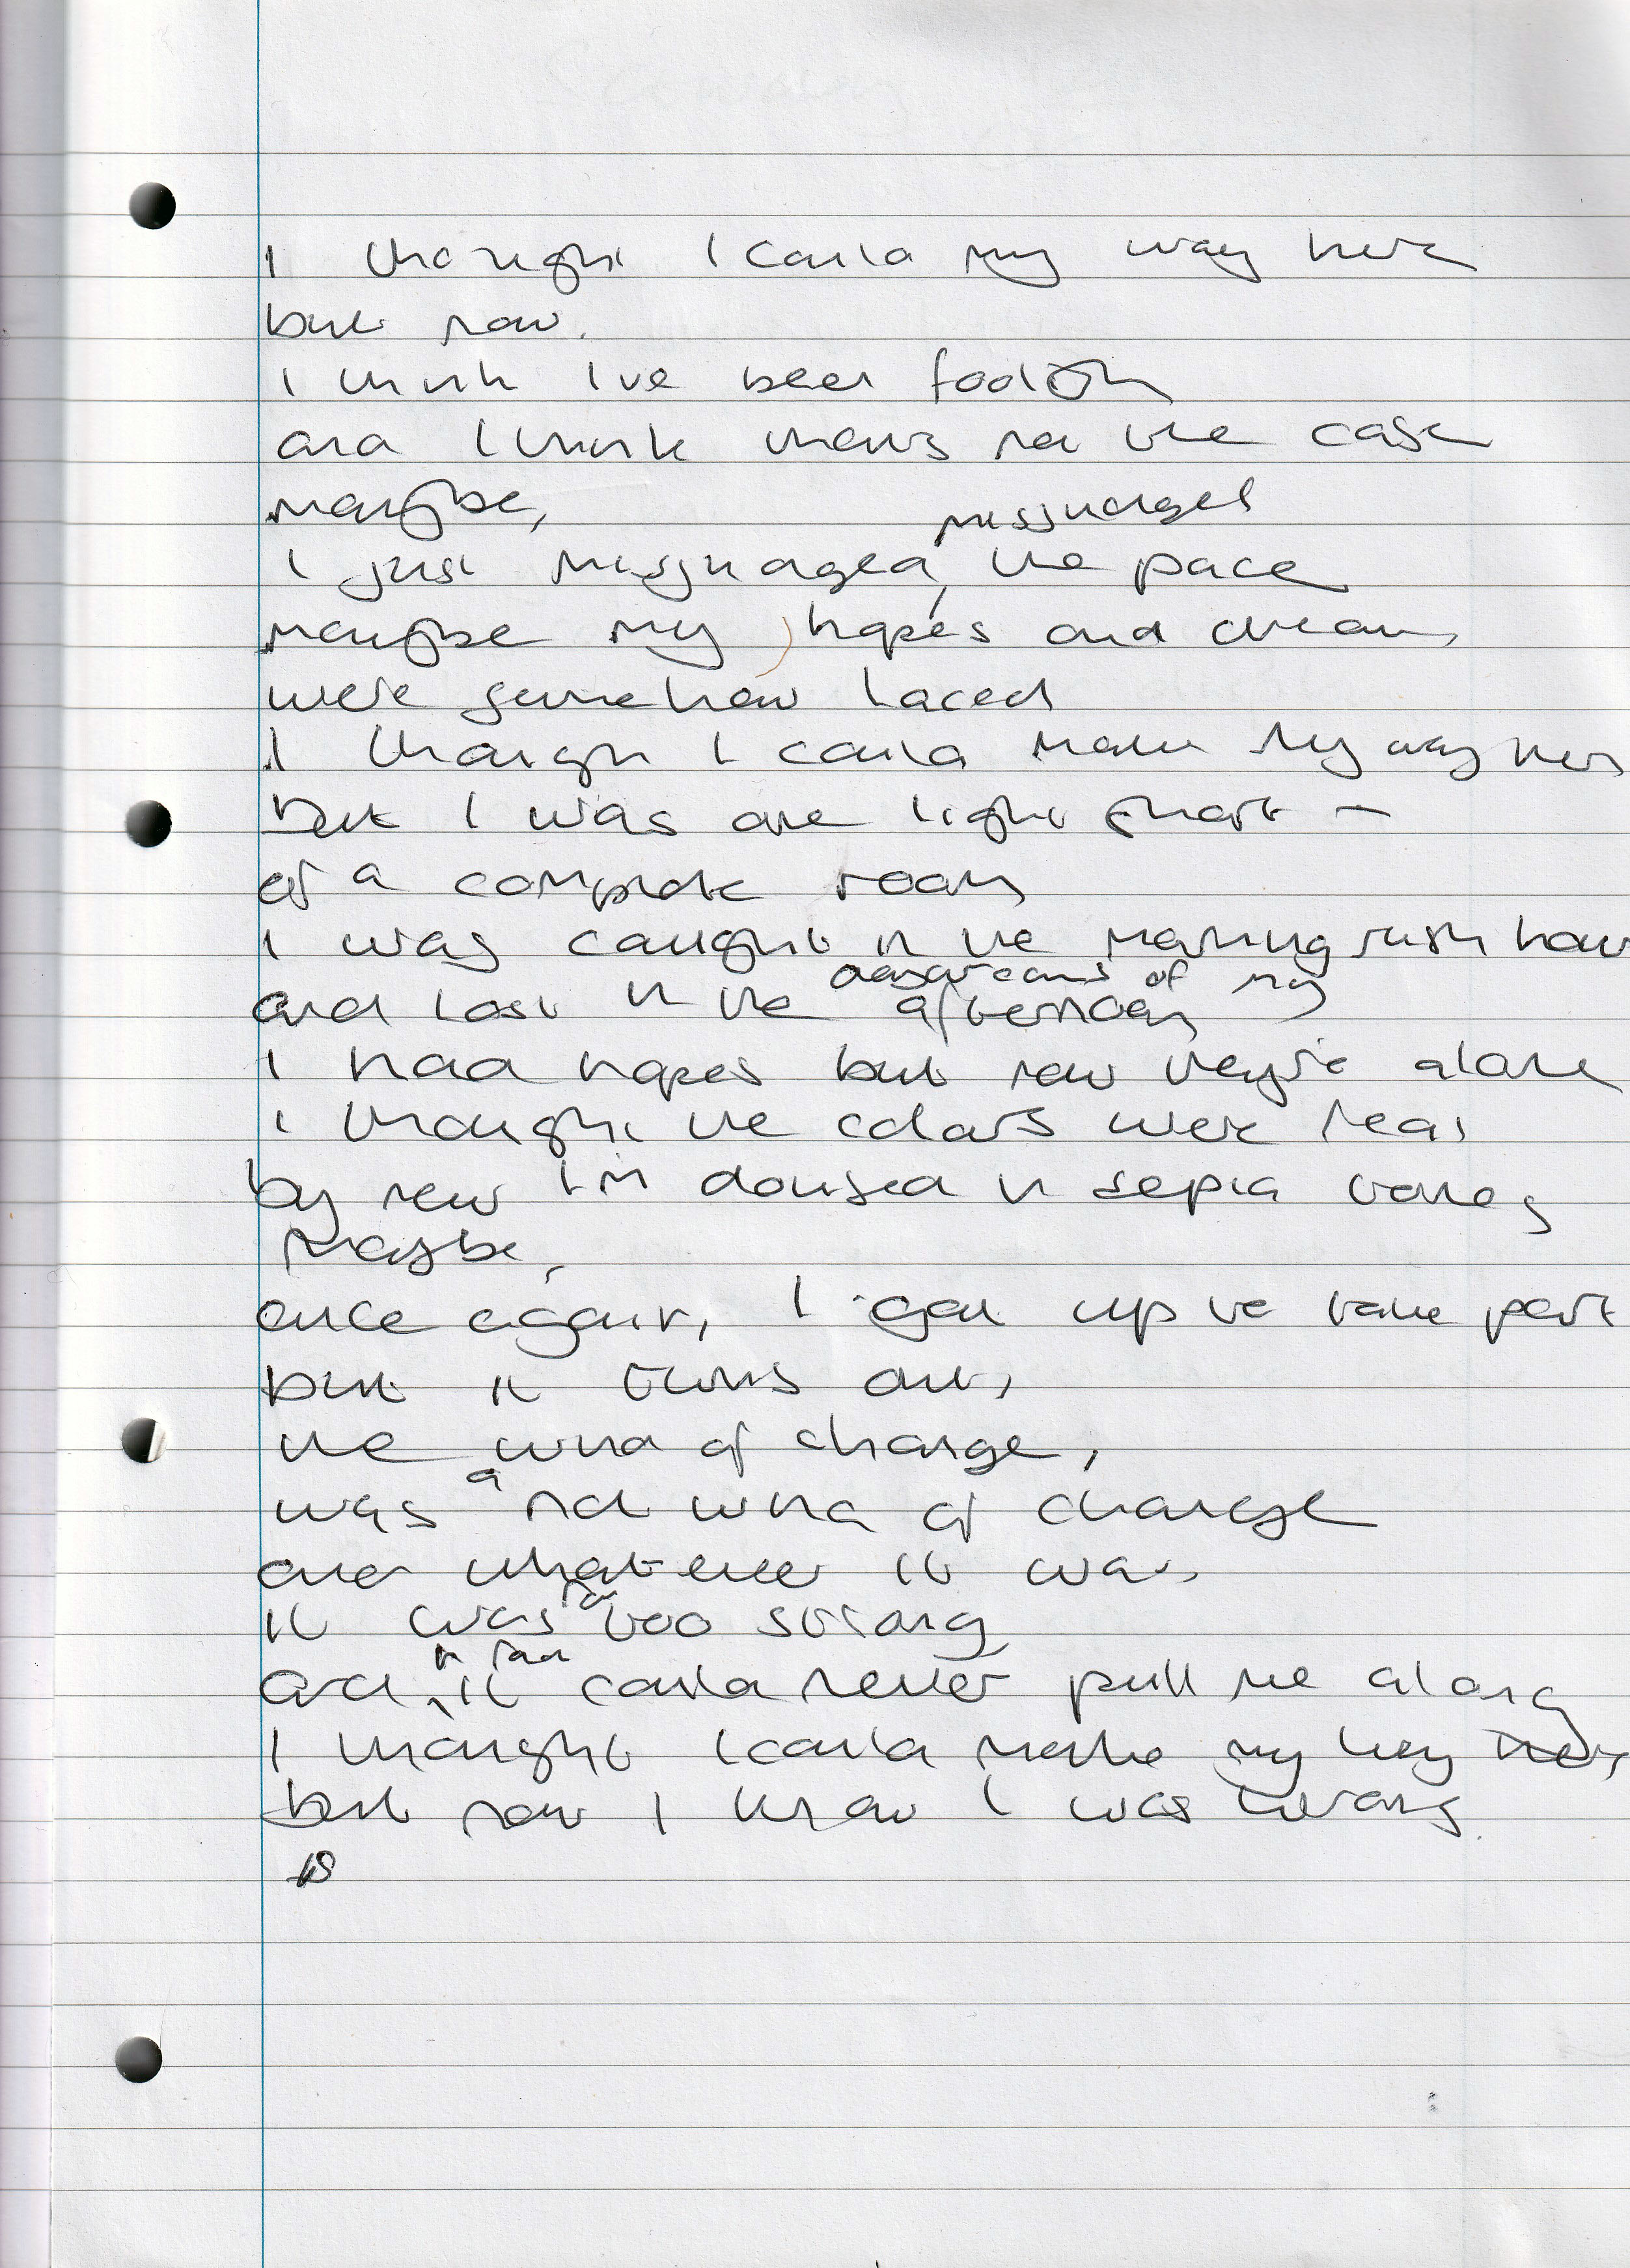 I thought I could my way here
but now.
I think I've been foolish
and I think that's not the case
maybe,
misjudged
I just misjudged, the pace
maybe my hopes and dreams
were somehow laced
I thought I could make my way here
but I was one light short –
of a complete room
I was caught in the morning rush hour
daydreams of my
and lost in the afternoon
I had hopes but now they're alone
I thought the colours were real
by now I'm doused in sepia tones
Maybe,
once again, I got up to take part
but it turns out,
the wind of change,
a
was not wind of change
and whatever it was,
far
it was too strong
in fact
and, it could never pull me along
I thought I could make my way here
but now I know I was wrong